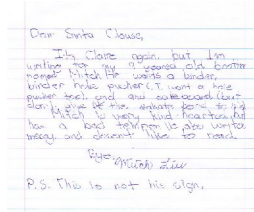 Dear Santa Clause,
It's Claire again, but I'm
writing for my 9 years old brother
named Mitch. He wants a binder,
binder hole puncher (I want a hole
puncher too), and and
give it the
Mitch is very kind-hearted, but
has a bad He also writes
messy, and doesn't like to read.
Bye,
Mitch Liu
P.S. This is not his sign.